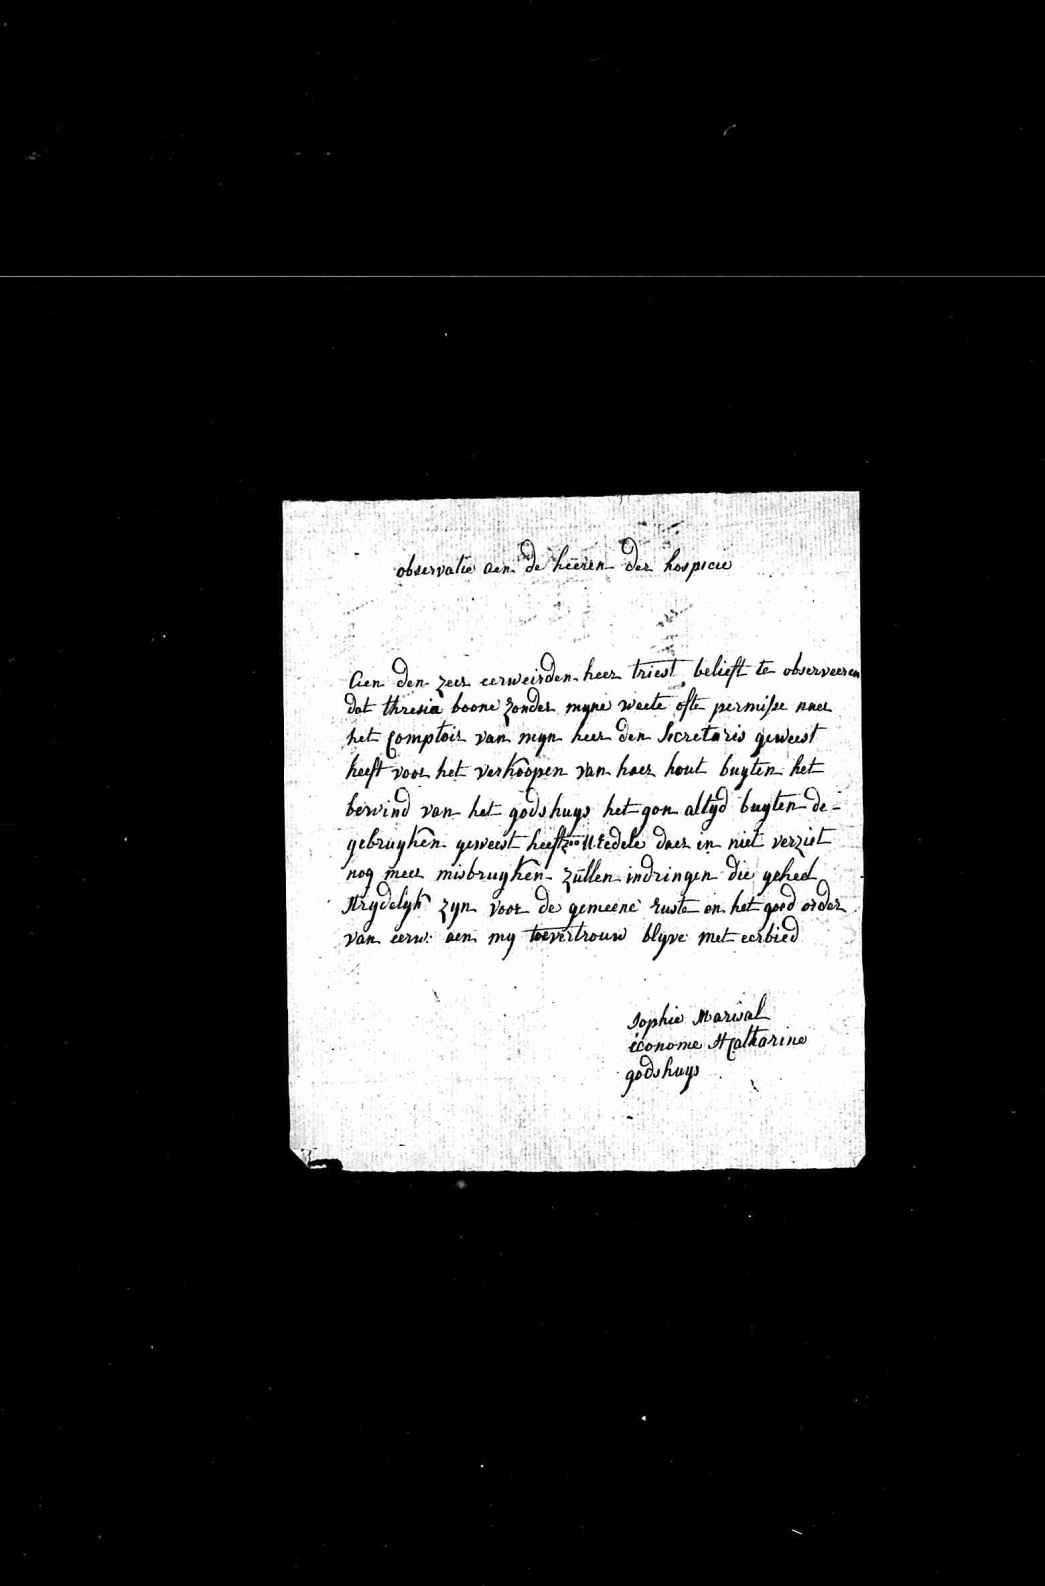 observatie aen de heeren der hospicie
Aen den zeer eerweirden heer triest belieft te observeeren
dat thresia boone zonder myne weete ofte permisse naer
het Comptoir van myn heer den Secretaris geweest
heeft voor het verkoopen van haer hout buyten het
bewind van het godshuys het gon altyd buyten de
gebruyken geweest heeft zoo UEedele daer in niet verziet
nog meer misbruyken zullen indringen die geheel
strydelyk zyn voor de gemeene ruste en het goed order
van eerw. aen my toevertrouw blyve met eerbied
Sophie
économe St Catharine
godshuys